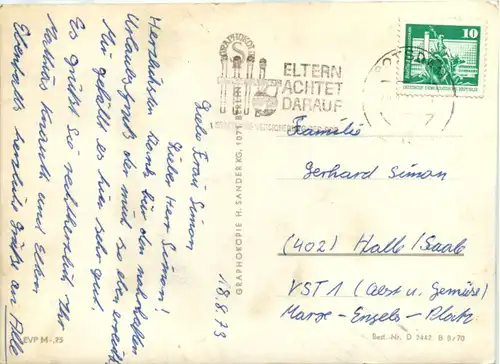 18.8.73
Liebe Frau Simon,
Lieber Herr Simon!
Herzlichsten Dank für den
Urlaubsgruß der mich so
Mir gefällt es hier sehr gut.
Es grüßt Sie recht herzlich Ihr
Mathias und Eltern
Ebenfalls herzliche Grüße an Alle
EVP M -,25
GRAPHOKOPIE H. SANDER KG, 1071 BERLIN
ELTERN
ACHTET
DARAUF
10
DEUTSCHE DEMOKRATISCHE REPUBLIK
Familie
Gerhard Simon
(402) Halle/Saale
VST 1 (Obst u. Gemüse)
Marx-Engels-Platz
Best.-Nr. D 2447 B 8/70